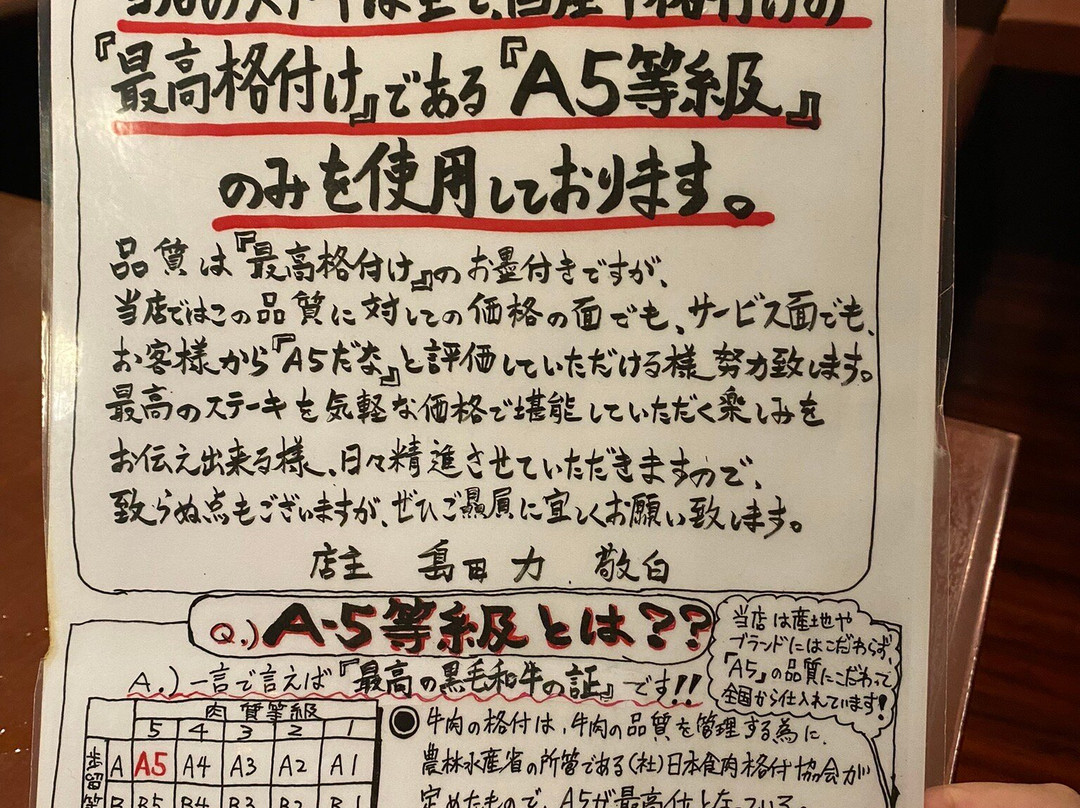 当店のステーキは全て、国産牛格付けの
『最高格付け』である『A5等級』
のみを使用しております。
品質は『最高格付け』のお墨付きですが、
当店ではこの品質に対しての価格の面でも、サービス面でも、
お客様から『A5だな』と評価していただける様 努力致します。
最高のステーキを気軽な価格で堪能していただく楽しみを
お伝え出来る様、日々精進させていただきますので、
致らぬ点もございますが、ぜひご贔屓に宜しくお願い致します。
店主 島田 力 敬白
Q.) A-5等級とは??
A.) 一言で言えば『最高の黒毛和牛の証』です!!
当店は産地や
ブランドにはこだわらず、
「A5」の品質にこだわって
全国から仕入れています!
肉質等級
5 4 3 2 1
歩留等
A A5 A4 A3 A2 A1
B B5 B4 B3 B2 B1
◉ 牛肉の格付は、牛肉の品質を管理する為に、
農林水産省の所管である(社)日本食肉格付協会が
定めたもので、A5が最高位となっている。